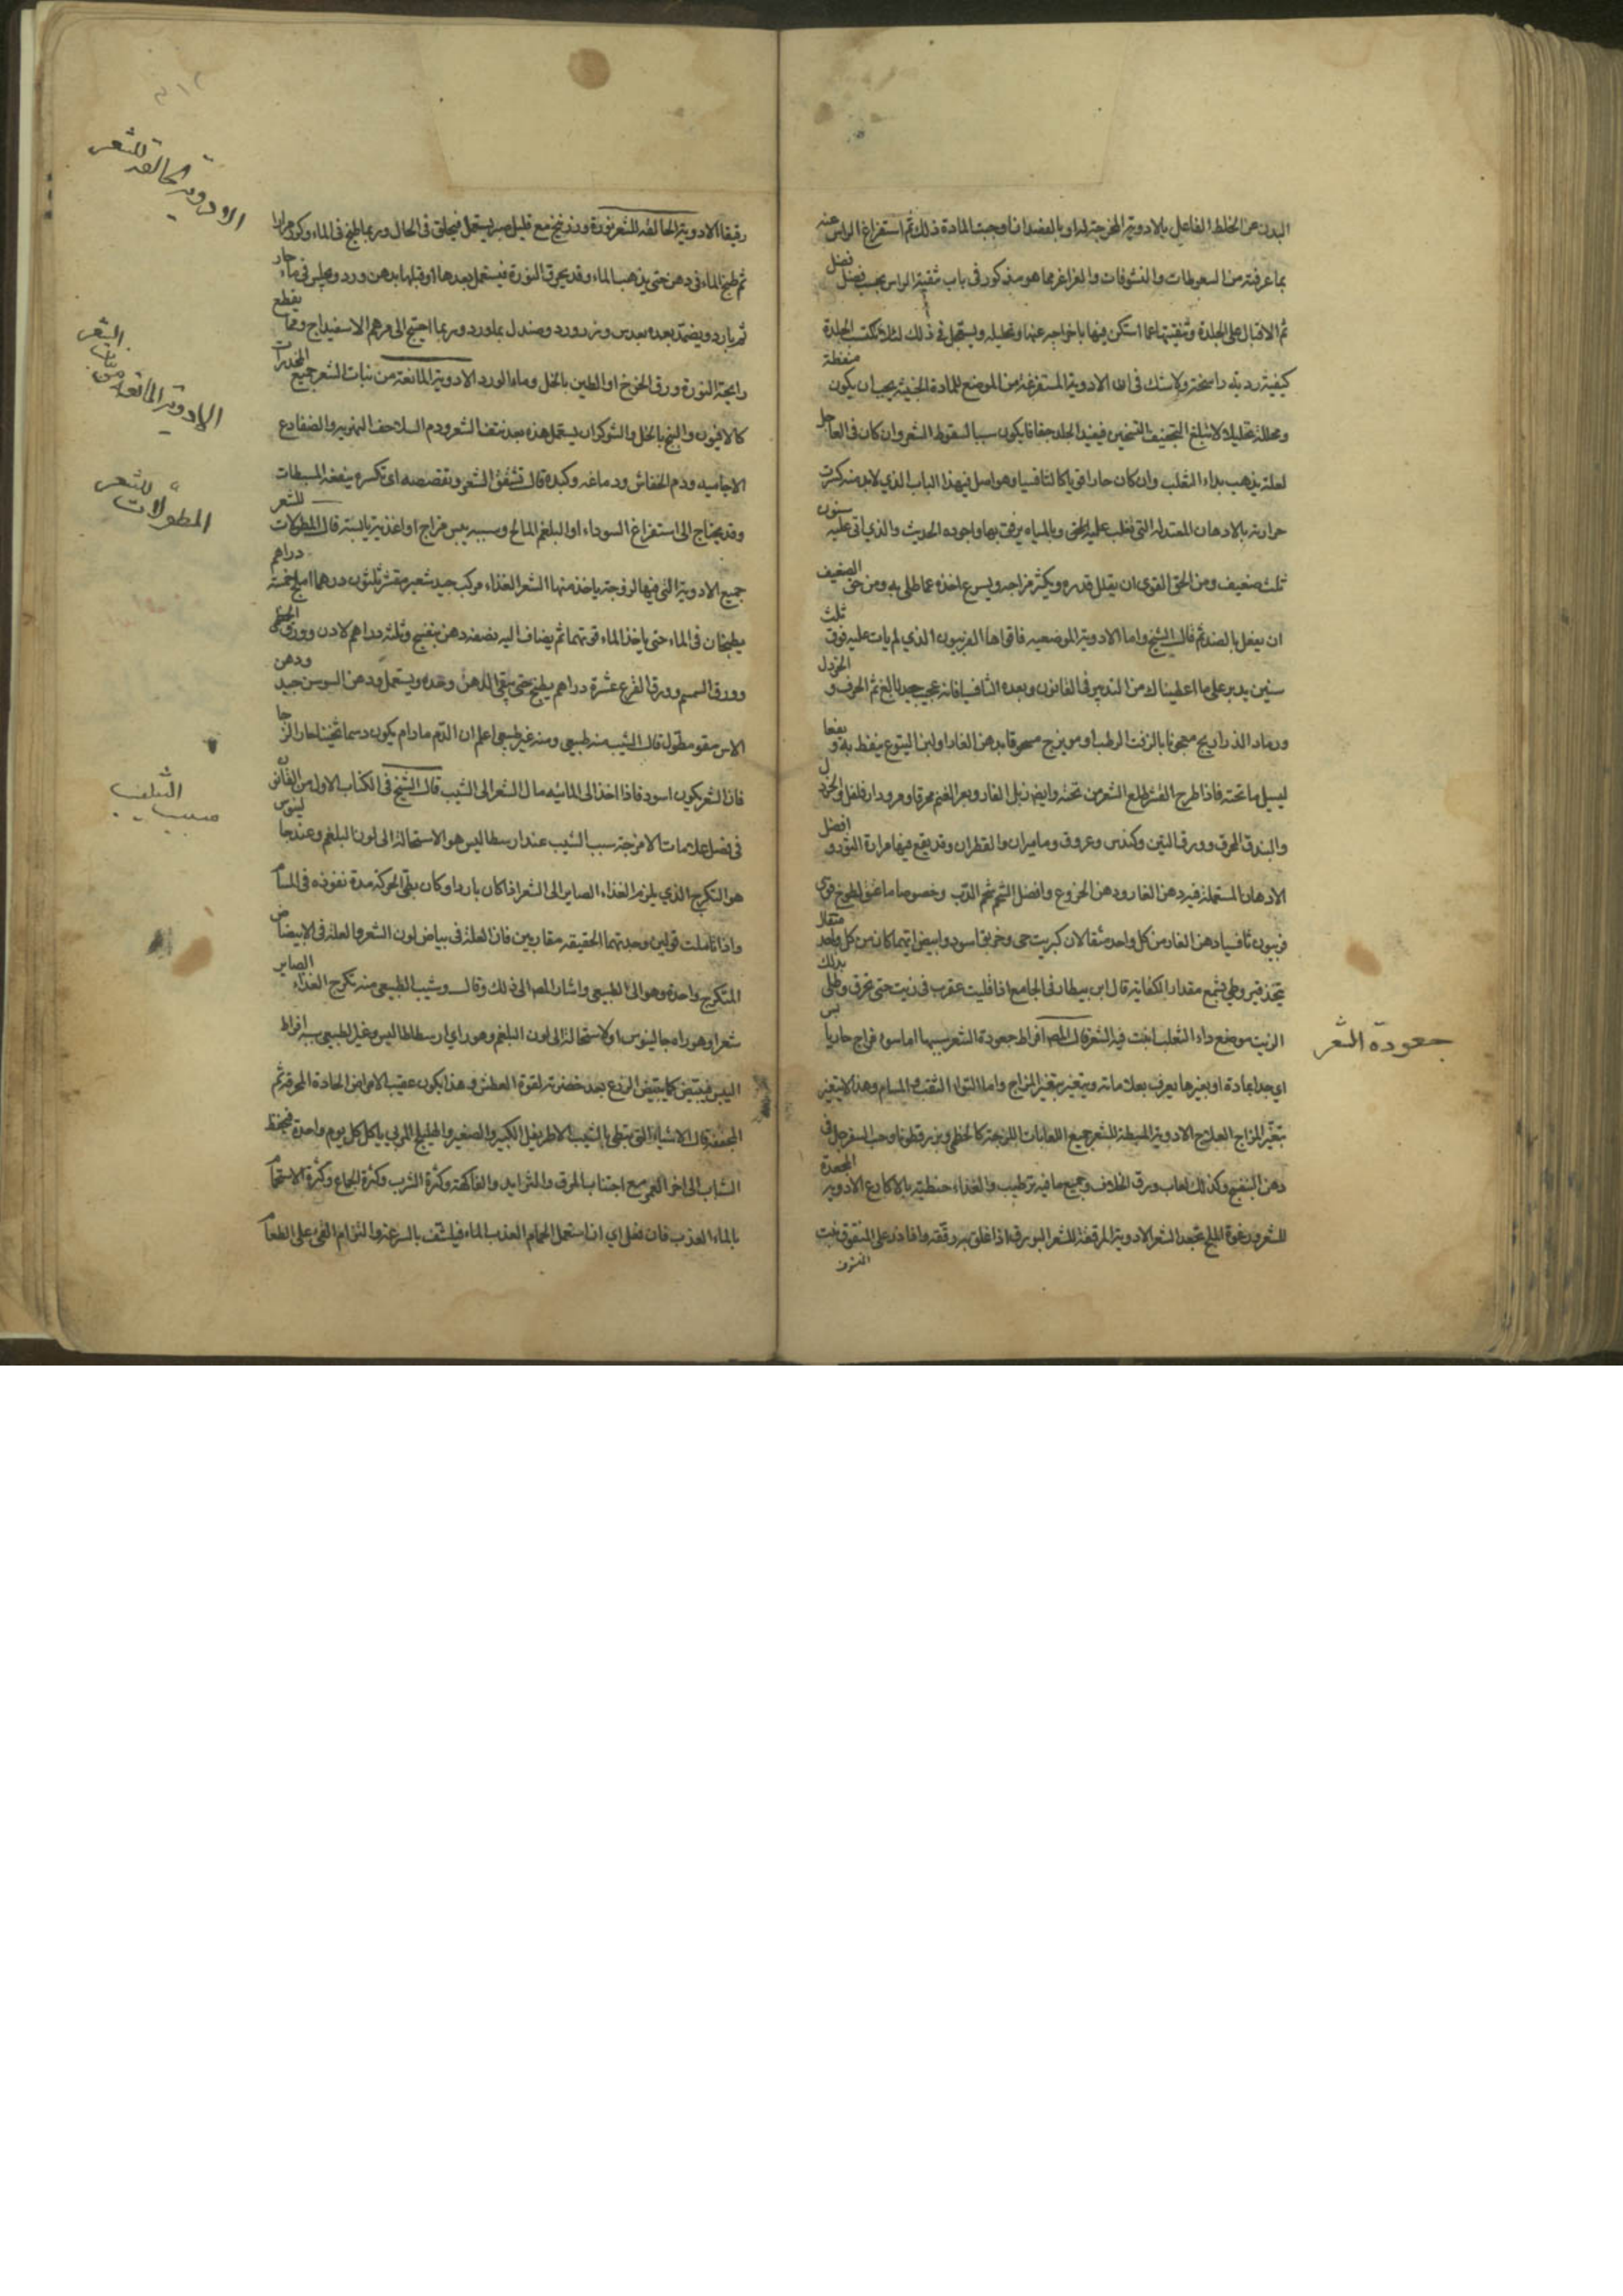 البدن عن الخلط الفاعل بالادوية المخرجة له او بالفصد ان اوجبت المادة ذلك ثم استفراغ الراس عنه
بما عرفته من السعوطات والنشوقات والغراغر مما هو مذكور فى باب تنقية الراس بحسب فضل فضل
ثم الاقبال على الجلدة وتنقيتها عما استكن فيها باخراجه عنها وتحليله ويستعجل فى ذلك لئلا تكتسب الجلدة
كيفية ردية راسخة ولا شك فى ان الادوية المستفرغة من الموضع للمادة الخبيثة يجب ان يكون منفطة
ومحللة تحليلا لا تبلغ التجفيف التسخين فيفيد الجلد جفافا يكون سببا لسقوط الشعر وان كان فى العاجل
لعلة يذهب بداء الثعلب وان كان حارا قويا كالثافسيا وهو اصل فى هذا الباب الذي لا بد منه كسرت
حرارته بالادهان المعتدلة التى تغلب عليه حتى وبالمياه يرفق بها واجوده الحديث والذي اتى عليه سنون
ثلث ضعيف ومن الحق القوى ان يقلل قدره ويكثر مزاجه ويسرع اخذه عما طلى به ومن حق الضعيف
ان يفعل بالضد ثم قال الشيخ واما الادوية الموضعية فاقواها الفربيون الذي لم يات عليه فوق ثلث
سنين يدبر على ما اعطيناك من التدبير فى القانون وبعده الثافسيا فانه عجيب جيد بالغ ثم الحرف و الخردل
ورماد الذراريج معجونا بالزفت الرطب او مويزج مسحوقا بدهن الغار او لبن اليتوع ينفط به و يفعا
ليسيل ما تحته فاذا طرح القشر طلع الشعر من تحته وايضا زبل الفار وبعر الغنم محرقا ومرو دار فلفل والخردل
والبندق المحرق وورق التين وكندس وعروق وماميران والقطران وقد يقع فيها مرارة الثور و افضل
الادهان المستعملة فيه دهن الغار ودهن الخروع وافضل الشحم شحم الدب وخصوصا ما عتق لطوخ قوى
فربيون ثافسيا دهن الغار من كل واحد مثقالان كبريت حى وخربق اسود وابيض ايهما كان من كل واحد مثقال
يتخذ قيروطى بشمع مقدار الكفاية قال ابن بيطار فى الجامع اذا قليت عقرب فى زيت حتى تحرق وطلى بذلك
الزيت موضع داء الثعلب انبت فيه الشعر قال المص افراط جعودة الشعر سببها اما سوء مزاج حار يابس
جعودة الشعر
اي جدا عادة او بغيرها يعرف بعلاماته ويتغير بتغير المزاج واما التواء الثقب والمسام وهذا لا يتغير
بتغير المزاج العلاج الادوية المبسطة للشعر جميع اللعابات اللزجة كالخطمى وبزر قطونا وحب السفرجل فى
دهن البنفسج وكذلك لعاب ورق الخلاف وجميع ما فيه ترطيب والغذاء حنطية بالاكارع الادوية المجعدة
للشعر رغوة الملح تجعد الشعر الادوية المرققة للشعر البورق اذا غلق به رققه واذا ذر على المنتوف نبت
رقيقا الادوية الحالقة للشعر نورة وزرنيخ مع قليل صبر يستعمل فيحلق فى الحال وربما طبخ فى الماء وكرر مرارا
الادوية الحالقة للشعر
ثم طبخ الماء فى دهن حتى يذهب الماء وقد يحرق النورة فيستعمل بعدها او قبلها بدهن ورد ويجلس فى ماء حار
ثم بارد ويضمد بعده بعدس وبزر ورد وصندل بماورد وربما احتيج الى مرهم الاسفيداج ومما يقطع
رايحة النورة ورق الخوخ او الطين بالخل وماء الورد الادوية المانعة من نبات الشعر جميع المخدرات
الادوية المانعة من نبات الشعر
كالافيون والبنج بالخل والشوكران يستعمل هذه بعد نتف الشعر ودم السلاحف النهرية والضفادع
الاجامية ودم الخفاش ودماغه وكبده قال تشقق الشعر وتقصفه اى تكسره ينفعه المبسطات
وقد يحتاج الى استفراغ السوداء او البلغم المالح وسببه يبس مزاج او اغذية يابسة قال المطولات للشعر
المطولات للشعر
جميع الادوية التى فيها لزوجة ياخذ منها الشعر الغذاء مركب جيد شعير مقشر ثلثون درهما املج خمسة دراهم
يطبخان فى الماء حتى ياخذ الماء قوتهما ثم يضاف اليه نصفه دهن بنفسج وثلثة دراهم لادن وورق الخطمى
وورق السمسم وورق القرع عشرة دراهم يطبخ حتى يبقى الدهن وحده ويستعمل ودهن السوسن جيد ودهن
الاس مقو مطول قال الشيب منه طبيعى ومنه غير طبيعى اعلم ان الدم مادام يكون دسما ثخينا حارا لزجا
فان الشعر يكون اسود فاذا اخذ الى المائية مال الشعر الى الشيب قال الشيخ فى الكتاب الاول من القانون
سبب الشيب
فى فصل علامات الامزجة سبب الشيب عند ارسطاليس هو الاستحالة الى لون البلغم وعند جالينوس
هو التكرج الذي يلزم الغذاء الصاير الى الشعر اذا كان باردا وكان بطى الحركة مدة نفوذه فى المسام
واذا تاملت قولين وجدتهما الحقيقة متقاربين فان العلة فى بياض لون الشعر والعلة فى الابيضاض
المتكرج واحدة وهو الى الطبيعى واشار المص الى ذلك وقال وشيب الطبيعى منه تكرج الغذاء الصاير
شعرا وهو راء جالينوس او لاستحالة الى لون البلغم وهو راي ارسطاطاليس وغير الطبيعى سببه افراط
اليبس فيبيض كما يبيض الزرع بعد خضرته لقوة العطش وهذا يكون عقيب الامراض الحادة المحرقة ثم
المجففة قال الاشياء التى تبطى بالشيب الاطريفل الكبير والصغير والهليلج المربى ياكل كل يوم واحدة فيحفظ
الشباب الى اخر العمر مع اجتناب المرق والثرايد والفاكهة وكثرة الشرب وكثرة الجماع وكثرة الاستحمام
بالماء العذب فان فعل اي ان استعمل الحمام العذب الماء فلينشف بالسرعة والتزام القى على الطعام